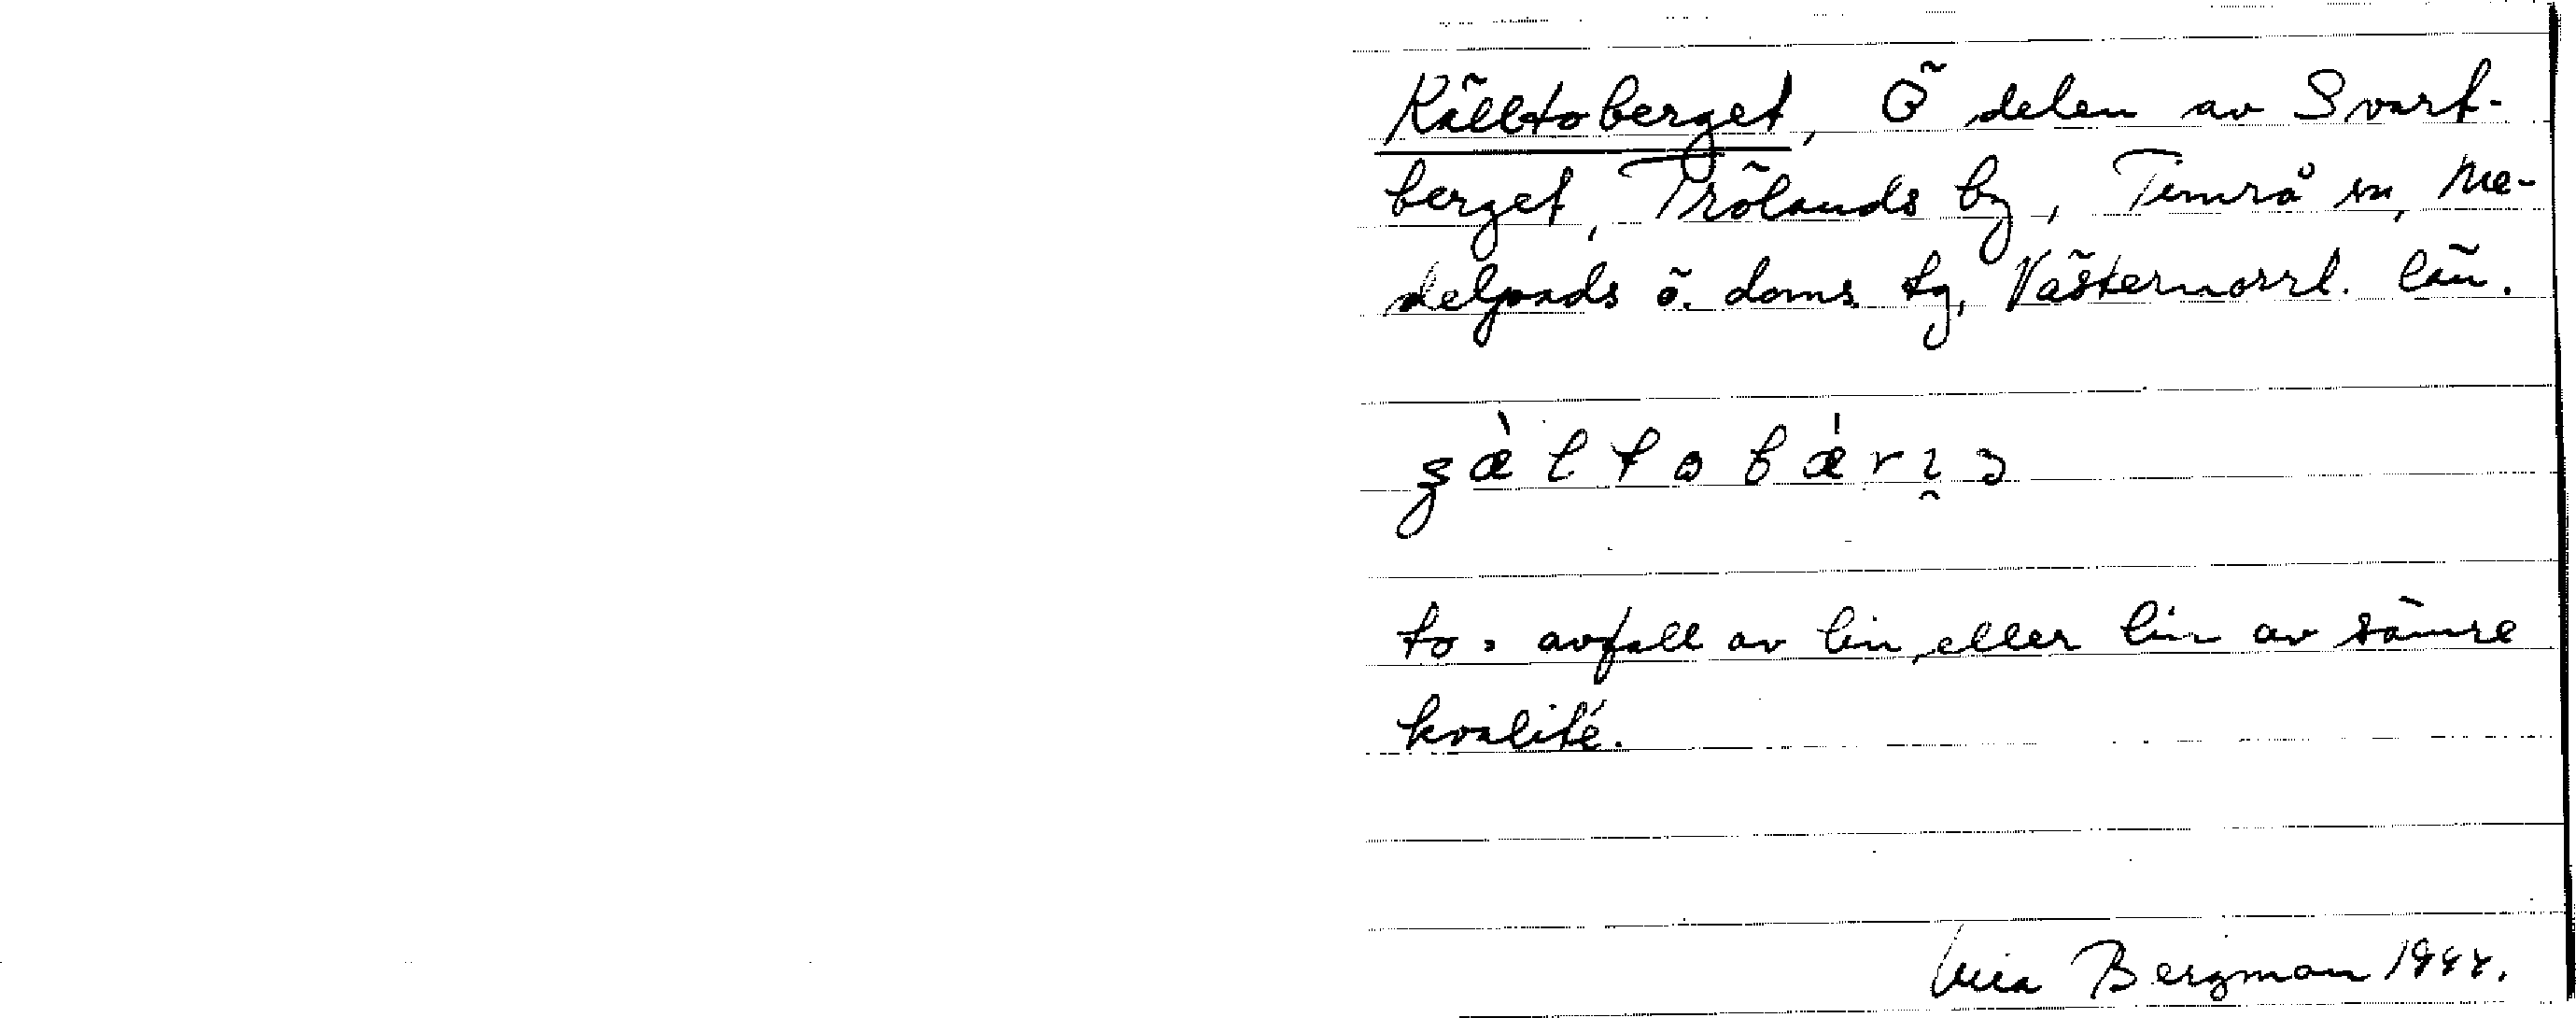 Källtoberget, Ö delen av Svart-
berget, Prölands by, Timrå sn, Me-
delpads ö. doms. tg, Västernorrl. län.
to = avfall av lin, eller lin av sämre
kvalité.
Bergman